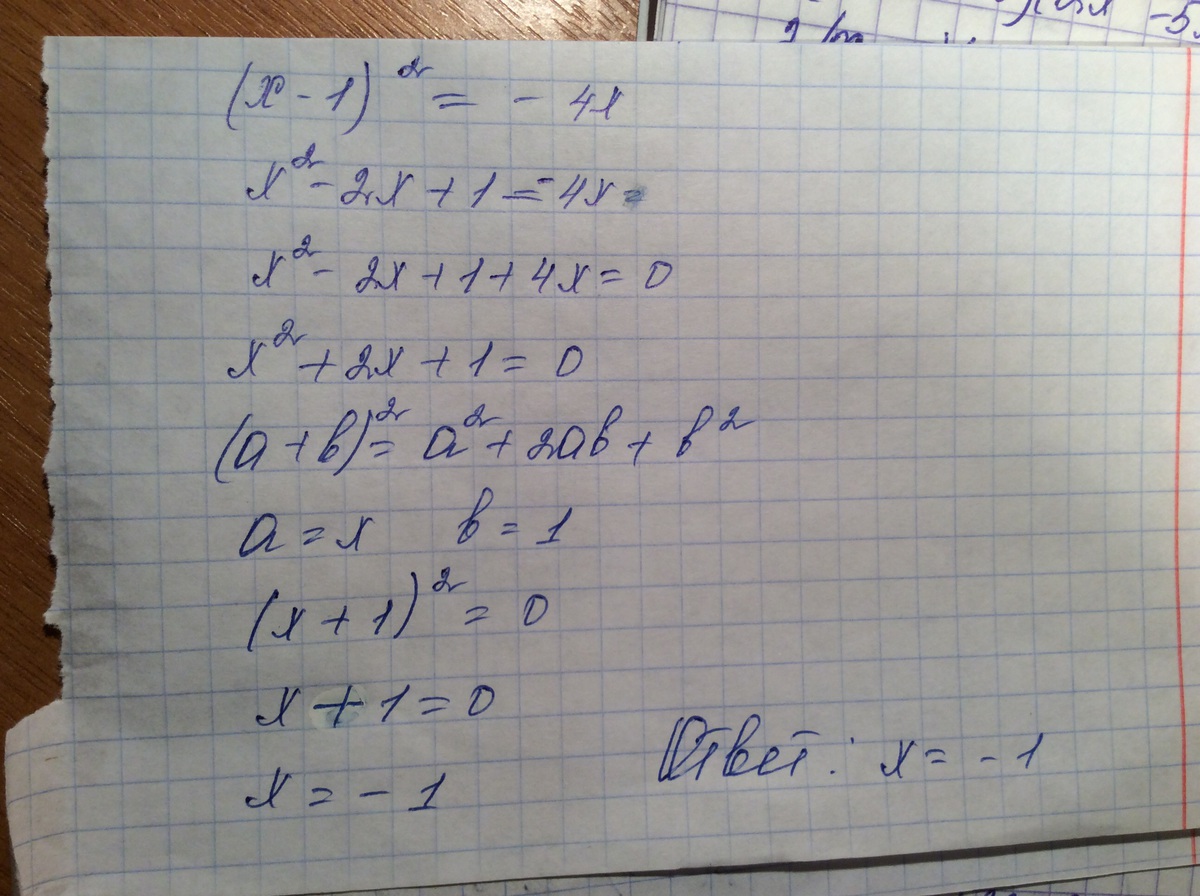 (x - 1)² = - 4x
x² - 2x + 1 = - 4x =
x² - 2x + 1 + 4x = 0
x² + 2x + 1 = 0
(a + b)² = a² + 2ab + b²
a = x b = 1
(x + 1)² = 0
x + 1 = 0
x = - 1
Ответ: x = - 1